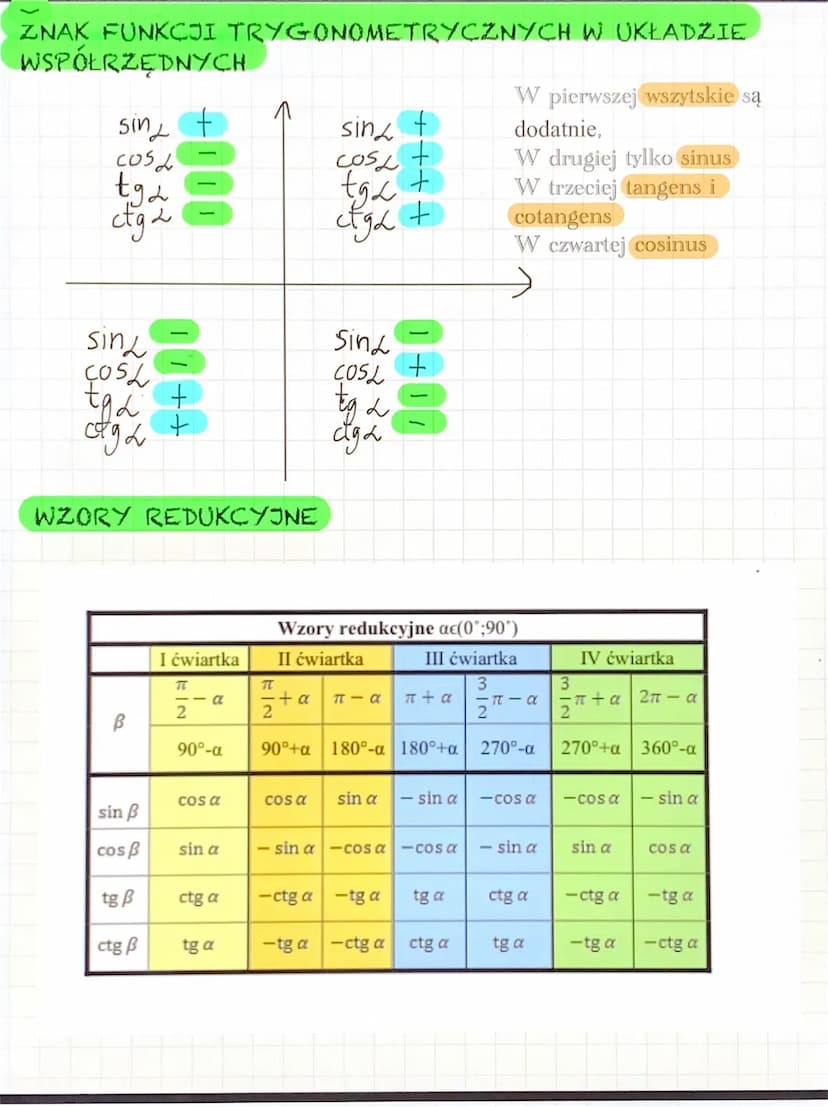 ZNAK FUNKCJI TRYGONOMETRYCZNYCH W UKŁADZIE
WSPÓŁRZĘDNYCH
sinα +
cosα −
tgα −
ctgα −
sinα +
cosα +
tgα +
ctgα +
W pierwszej wszytskie są
dodatnie,
W drugiej tylko sinus
W trzeciej tangens i
cotangens
W czwartej cosinus
sinα −
cosα −
tgα +
ctgα +
sinα −
cosα +
tgα −
ctgα −
WZORY REDUKCYJNE
Wzory redukcyjne αϵ(0°;90°)
I ćwiartka II ćwiartka III ćwiartka IV ćwiartka
β π/2 − α π/2 + α π − α π + α 3/2 π − α 3/2 π + α 2π − α
90°-α 90°+α 180°-α 180°+α 270°-α 270°+α 360°-α
sin β cos α cos α sin α − sin α −cos α −cos α − sin α
cos β sin α − sin α −cos α −cos α − sin α sin α cos α
tg β ctg α −ctg α −tg α tg α ctg α −ctg α −tg α
ctg β tg α −tg α −ctg α ctg α tg α −tg α −ctg α